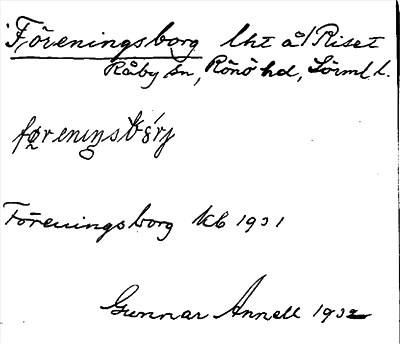 Föreningsborg lht å/ Riset
Råby sn, Rönö hd, Sörml l.
föreningsbórj
Föreningsborg kb 1931
Gunnar Annell 1932